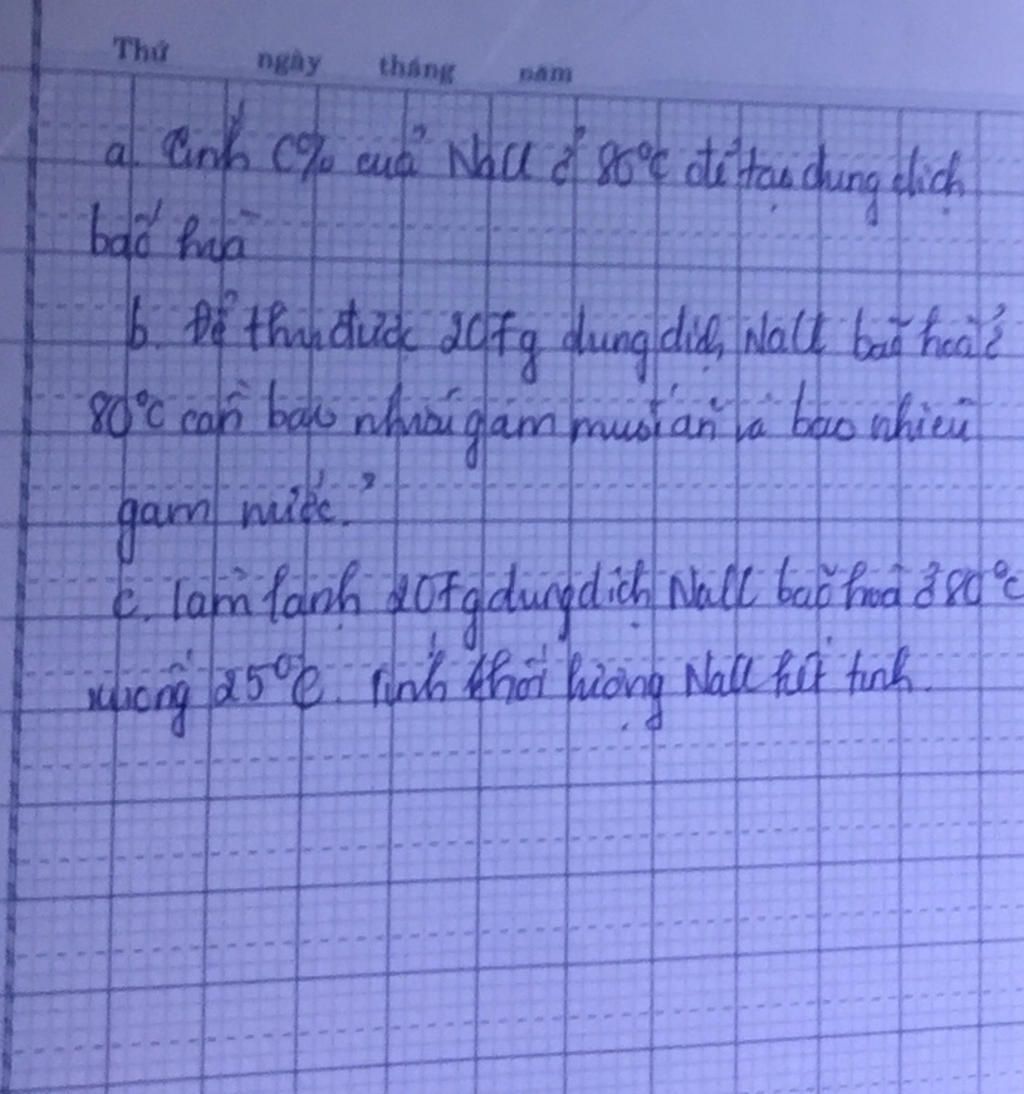 Thứ ngày tháng năm
a. Tính C% của NaCl ở 80°C để tạo dung dịch
bão hoà
b. Để thu được 207g dung dịch NaCl bão hoà ở
80°C cần bao nhiêu gam muối ăn và bao nhiêu
gam nước?
c. làm lạnh 207g dung dịch NaCl bão hoà ở 80°C
xuống 25°C. Tính khối lượng NaCl kết tinh.